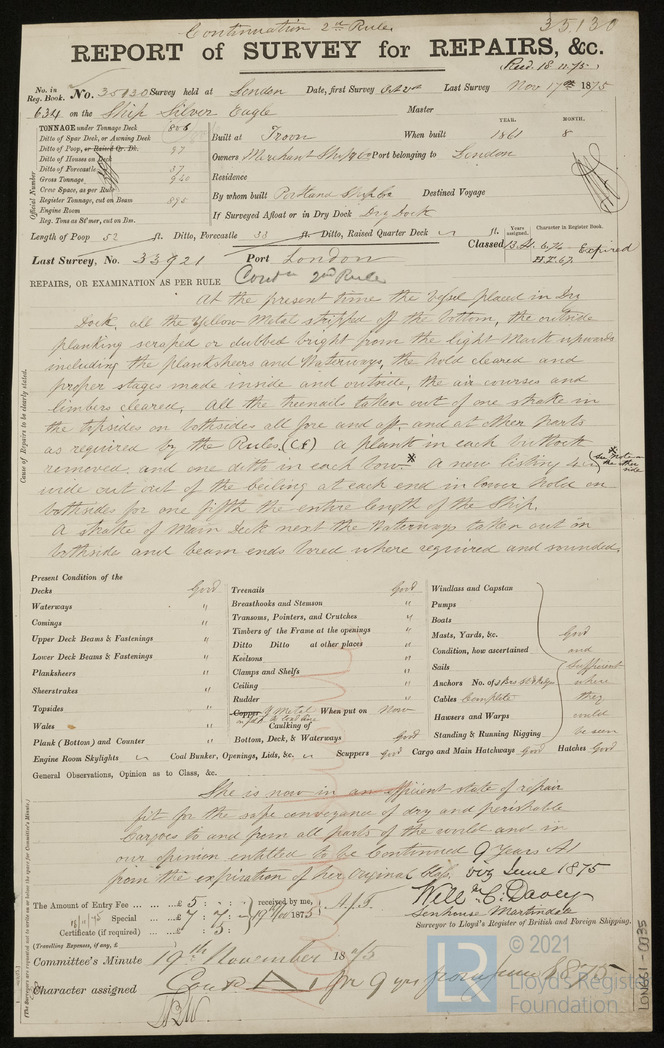 Continuation 2nd Rule
35130
REPORT of SURVEY for REPAIRS, &c.
Recd. 18.11.75.
No. in Reg. Book. No. 35130 Survey held at London Date, first Survey Last Survey Nov 17th 1875
634 on the Ship Silver Eagle Master
TONNAGE under Tonnage Deck 806
Ditto of Spar Deck, or Awning Deck
Ditto of Poop, or Raised Qr. Dk. 37
Ditto of Houses on Deck
Ditto of Forecastle 37
Gross Tonnage
Crew Space, as per Rule
Register Tonnage, cut on Beam
Engine Room
Reg. Tons as St'mer, cut on Bm.
Official Number
YEAR. MONTH.
Built at Troon When built 1861 8
Owners Merchant Ship Co Port belonging to London
Residence
By whom built Portland Ship Co Destined Voyage
If Surveyed Afloat or in Dry Dock Dry Dock
Length of Poop 52 ft. Ditto, Forecastle 33 ft. Ditto, Raised Quarter Deck ft.
Years assigned. Character in Register Book.
Classed Expired
Last Survey, No. 33921 Port London
REPAIRS, OR EXAMINATION AS PER RULE Contn 2nd Rule
At the present time the Vessel placed in Dry
Dock, all the Yellow Metal stripped off the bottom, the outside
planking scraped or dubbed bright from the light mark upwards
including the planksheers and Waterways, the hold cleared and
proper stages made inside and outside, the air courses and
limbers cleared, All the treenails taken out of one strake in
the topsides on bothsides all fore and aft and at other parts
as required by the Rules, a plank in each buttock
removed and one ditto in each bow x A new listing 4 in
x see note on the other side
wide cut out of the ceiling at each end in lower hold on
bothsides for one fifth the entire length of the Ship.
A strake of Main Deck next the Waterways taken out on
bothsides and beam ends bored where required and sounded.
Cause of Repairs to be clearly stated.
Present Condition of the
Decks Good
Waterways "
Comings "
Upper Deck Beams & Fastenings "
Lower Deck Beams & Fastenings "
Planksheers "
Sheerstrakes "
Topsides "
Wales "
Plank (Bottom) and Counter "
Treenails Good
Breasthooks and Stemson "
Transoms, Pointers, and Crutches "
Timbers of the Frame at the openings "
Ditto Ditto at other places "
Keelsons "
Clamps and Shelfs "
Ceiling "
Rudder "
Copper Y Metal When put on Now
Caulking of
Bottom, Deck, & Waterways Good
Windlass and Capstan
Pumps
Boats
Masts, Yards, &c.
Condition, how ascertained
Sails
Anchors No. of
Cables Complete
Hawsers and Warps
Standing & Running Rigging
Good and Sufficient where they could be seen
Engine Room Skylights Coal Bunker, Openings, Lids, &c. Scuppers Good Cargo and Main Hatchways Good Hatches Good
General Observations, Opinion as to Class, &c.
She is now in an efficient state of repair
fit for the safe conveyance of dry and perishable
Cargoes to and from all parts of the world and in
our opinion entitled to be Continued 9 Years A1
from the expiration of her Original viz June 1875
The Amount of Entry Fee ... ... £ 5 : : received by me,
18/11/75 Special ... ... £ 7 : 7 : 19/11/1875
Certificate (if required) ... : 5 :
(Travelling Expenses, if any, £
Will C. Davey
Senhouse Martindale
Surveyor to Lloyd's Register of British and Foreign Shipping.
Committee's Minute 19th November 1875
Character assigned Contd A1 for 9 yrs from June 1875
LON661-0035
LR
© 2021
Lloyd's Register
Foundation